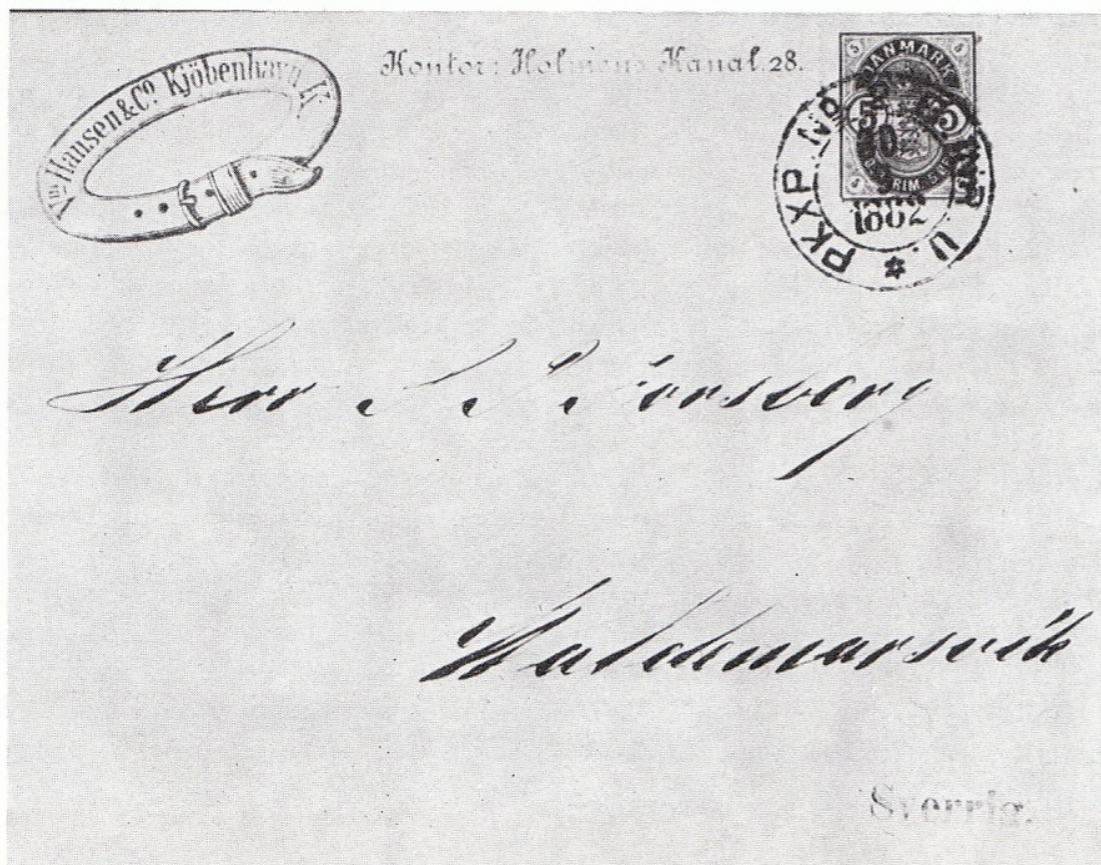 Vm Hansen & Co. Kjöbenhavn K.
Kontor: Holmens Kanal.28.
5 DANMARK 5
5
PKXP. NR U.
10
1882
Herr Forsberg
Waldemarsvik
Sverrig.